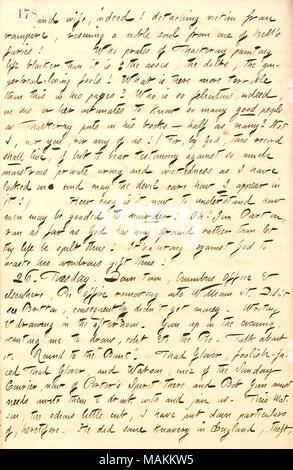 178
and wife, indeed! detaching victim from
vampire, rescuing a noble soul from one of hell's
furies! Who prates of Thackeray painting
life blacker than it is? the asses, the dolts, the gin-
gerbread-loving fools! What is there more terrible
than this in his pages? Who is so felicitous, indeed
in his or her intimates to know so many good people
as Thackeray puts in his books — half as many? Not
I, nor you, nor any of us! (For, by God, this record
shall live, if but to bear testimony against so much
monstrous private wrong and wickedness as I have
looked on and may the devil care how I appear in
it!) How easy is it now to understand how
men may be goaded to murder! Oh! Jim Parton,
run as far as God has any ground rather than let
thy life be spilt thus! It's a wrong against God to
waste his wondrous gift thus!
26. Tuesday. Down town, Omnibus Office &
elsewhere. Pic office removing into William St. Didn't
see Patten, consequently didn't get money. Writing
& drawing in the afternoon. Gun up in the evening,
wanting me to draw, celet &c, the Pic. Talk about
it. Round to the Bank. Thad Glover, foolish-fa-
ced Thad Glover, and Watson, once of the Sunday
Courier, now of Porter's Spirit there and Bob Gun must
needs invite them to drink with and join us. This Wat-
son, the odious little cub, I have put down particulars
of, heretofore. He did some knavery in England, theft
alamy
Image ID: MAKKW5
www.alamy.com